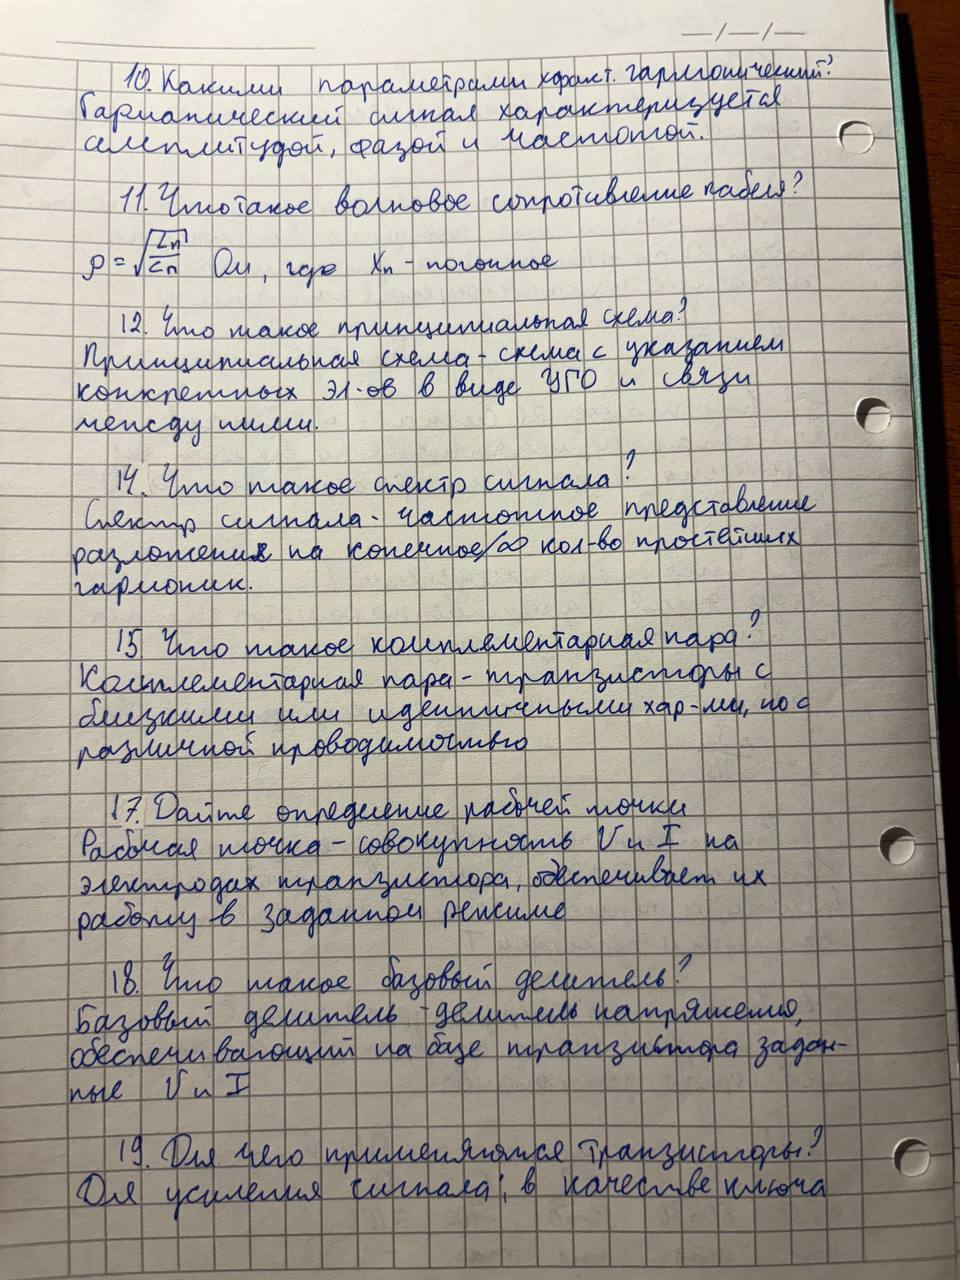 10. Какими параметрами характ. гармонический?
Гармонический сигнал характеризуется
амплитудой, фазой и частотой.
11. Что такое волновое сопротивление кабеля?
ρ = √(Lп/Cп) Ом, где Xп - погонное
12. Что такое принципиальная схема?
Принципиальная схема - схема с указанием
конкретных эл-ов в виде УГО и связи
между ними.
14. Что такое спектр сигнала?
Спектр сигнала - частотное представление
разложения на конечное/∞ кол-во простейших
гармоник.
15. Что такое комплементарная пара?
Комплементарная пара - транзисторы с
близкими или идентичными хар-ми, но с
различной проводимостью
17. Дайте определение рабочей точки
Рабочая точка - совокупность U и I на
электродах транзистора, обеспечивает их
работу в заданном режиме
18. Что такое базовый делитель?
Базовый делитель - делитель напряжения,
обеспечивающий на базе транзистора задан-
ные U и I
19. Для чего применяются транзисторы?
Для усиления сигнала, в качестве ключа